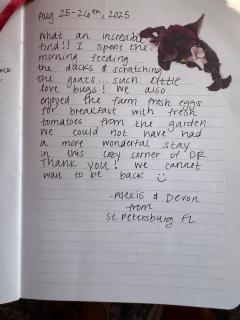 Aug 25-26th, 2025
what an incredible
find!! I spent the
morning feeding
the ducks & scratching
the goats... such little
love bugs! We also
enjoyed the farm fresh eggs
for breakfast with fresh
tomatoes from the garden
we could not have had
a more wonderful stay
in this cozy corner of OR.
Thank you! we cannot
wait to be back
-Alexis & Devon
from
St. Petersburg FL